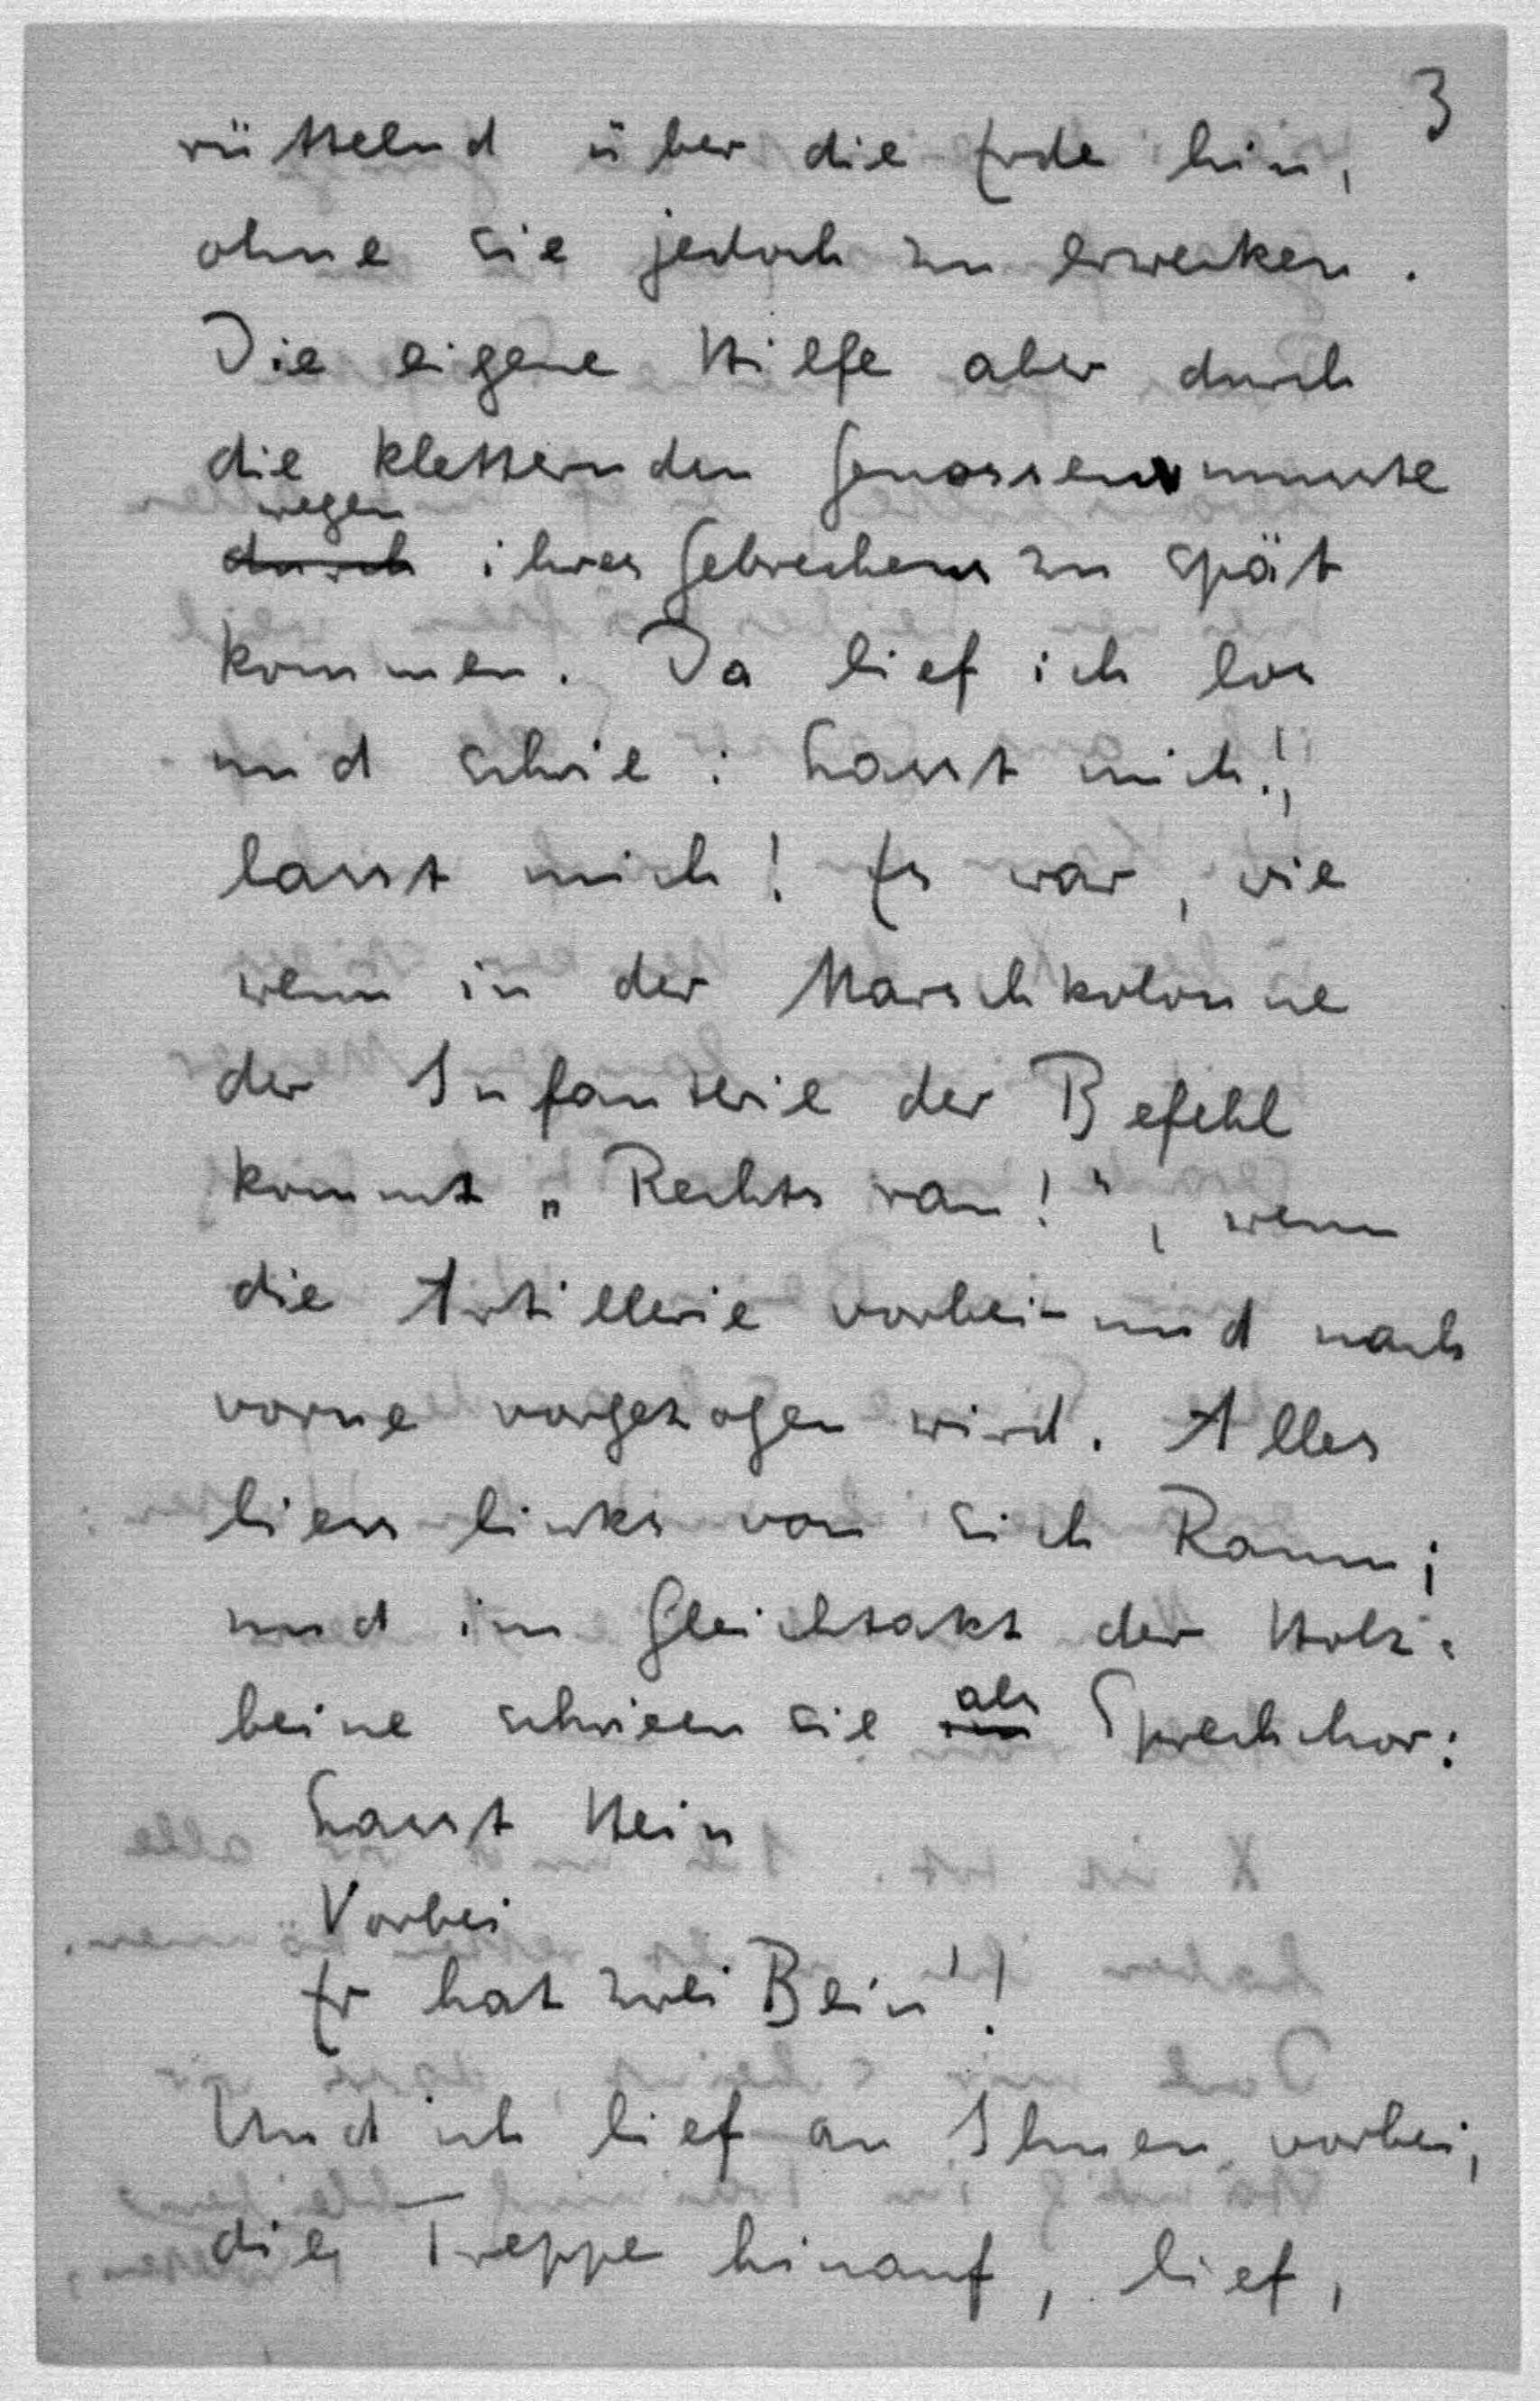 3
rüttelnd über die Erde hin,
ohne sie jedoch zu erwecken.
Die eigene Hilfe aber durch
die kletternden Genossen musste
wegen
durch ihres Gebrechens zu spät
kommen. Da lief ich los
und schrie: Lasst mich!,
lasst mich! Es war, wie
wenn in der Marschkolonne
der Infanterie der Befehl
kommt „Rechts ran!", wenn
die Artillerie vorbei- und nach
vorne vorgezogen wird. Alles
liess links von sich Raum;
und im Gleichtakt der Holz-
beine schrieen sie als Sprechchor:
Lasst Hein
Vorbei
Er hat zwei Bein'!
Und ich lief an Ihnen vorbei,
die Treppe hinauf, lief,